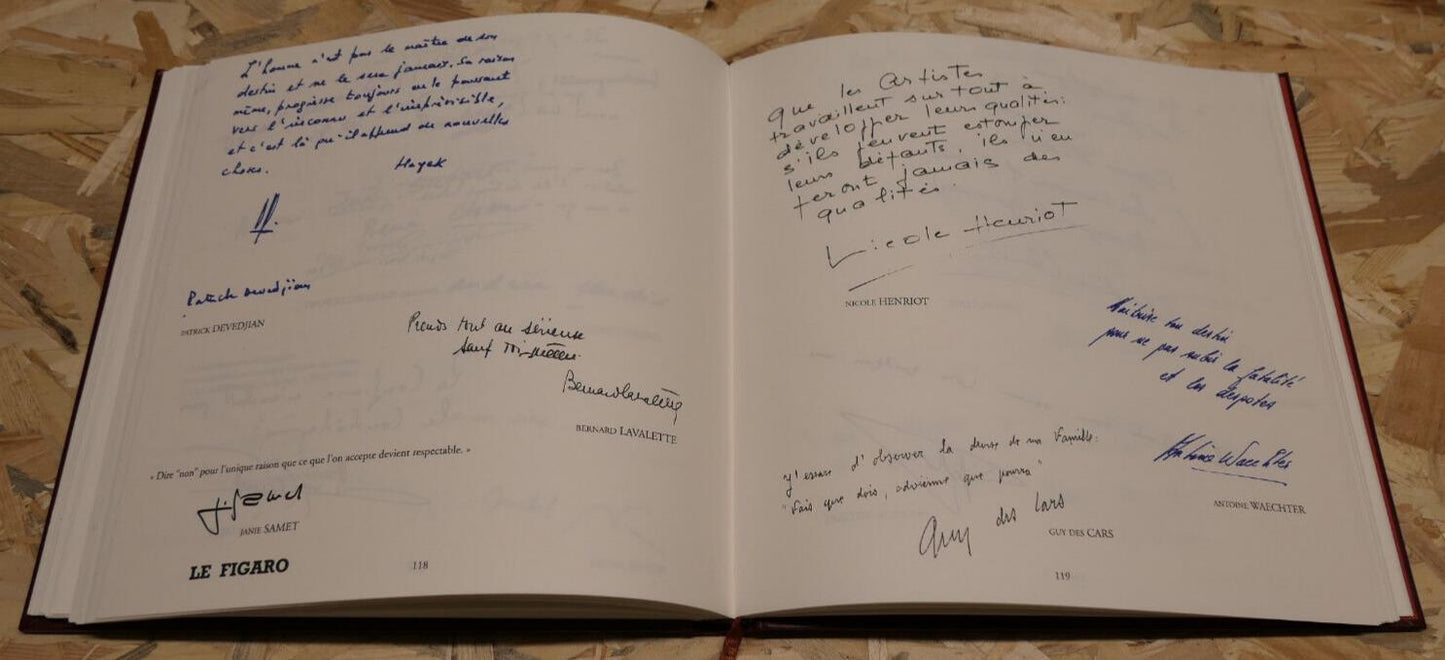 L'homme n'est pas le maître de son
destin et ne le sera jamais. Sa raison
même, progresse toujours en le poussant
vers l'inconnu et l'imprévisible,
et c'est là qu'il apprend de nouvelles
choses.
Hayek
Patrick Devedjian
PATRICK DEVEDJIAN
Prends tout au sérieux
sauf toi-même.
Bernard Lavalette
BERNARD LAVALETTE
« Dire "non" pour l'unique raison que ce que l'on accepte devient respectable. »
J. Samet
JANIE SAMET
LE FIGARO
118
que les artistes
travaillent surtout à
développer leurs qualités:
s'ils peuvent estomper
leurs défauts, ils n'en
feront jamais des
qualités.
Nicole Henriot
NICOLE HENRIOT
Maîtrise ton destin
pour ne pas subir la fatalité
et les despotes
Antoine Waechter
ANTOINE WAECHTER
J'essaie d'observer la devise de ma Famille:
"Fais que dois, advienne que pourra"
Guy des Cars
GUY DES CARS
119